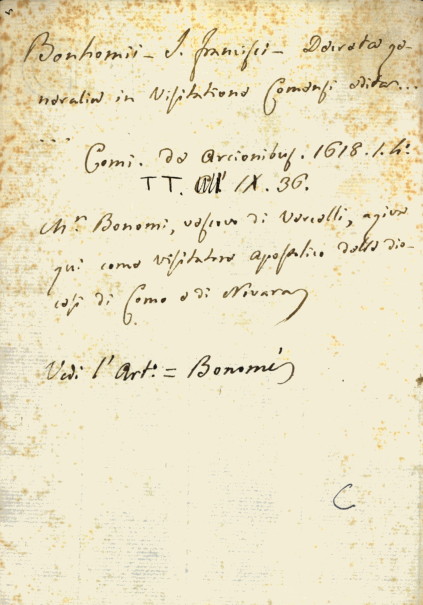 Bonhomii - J. Francisci - Decreta ge-
neralia in Visitatione Comensi edita...
...
Comi. de Arcionibus. 1618. 1. 4º.
TT. IX. 36.
Mr. Bonomi, vescovo di Vercelli, agiva
qui come Visitatore Apostolico della dio-
cesi di Como e di Novara
Vedi l' Arto. = Bonomi
C